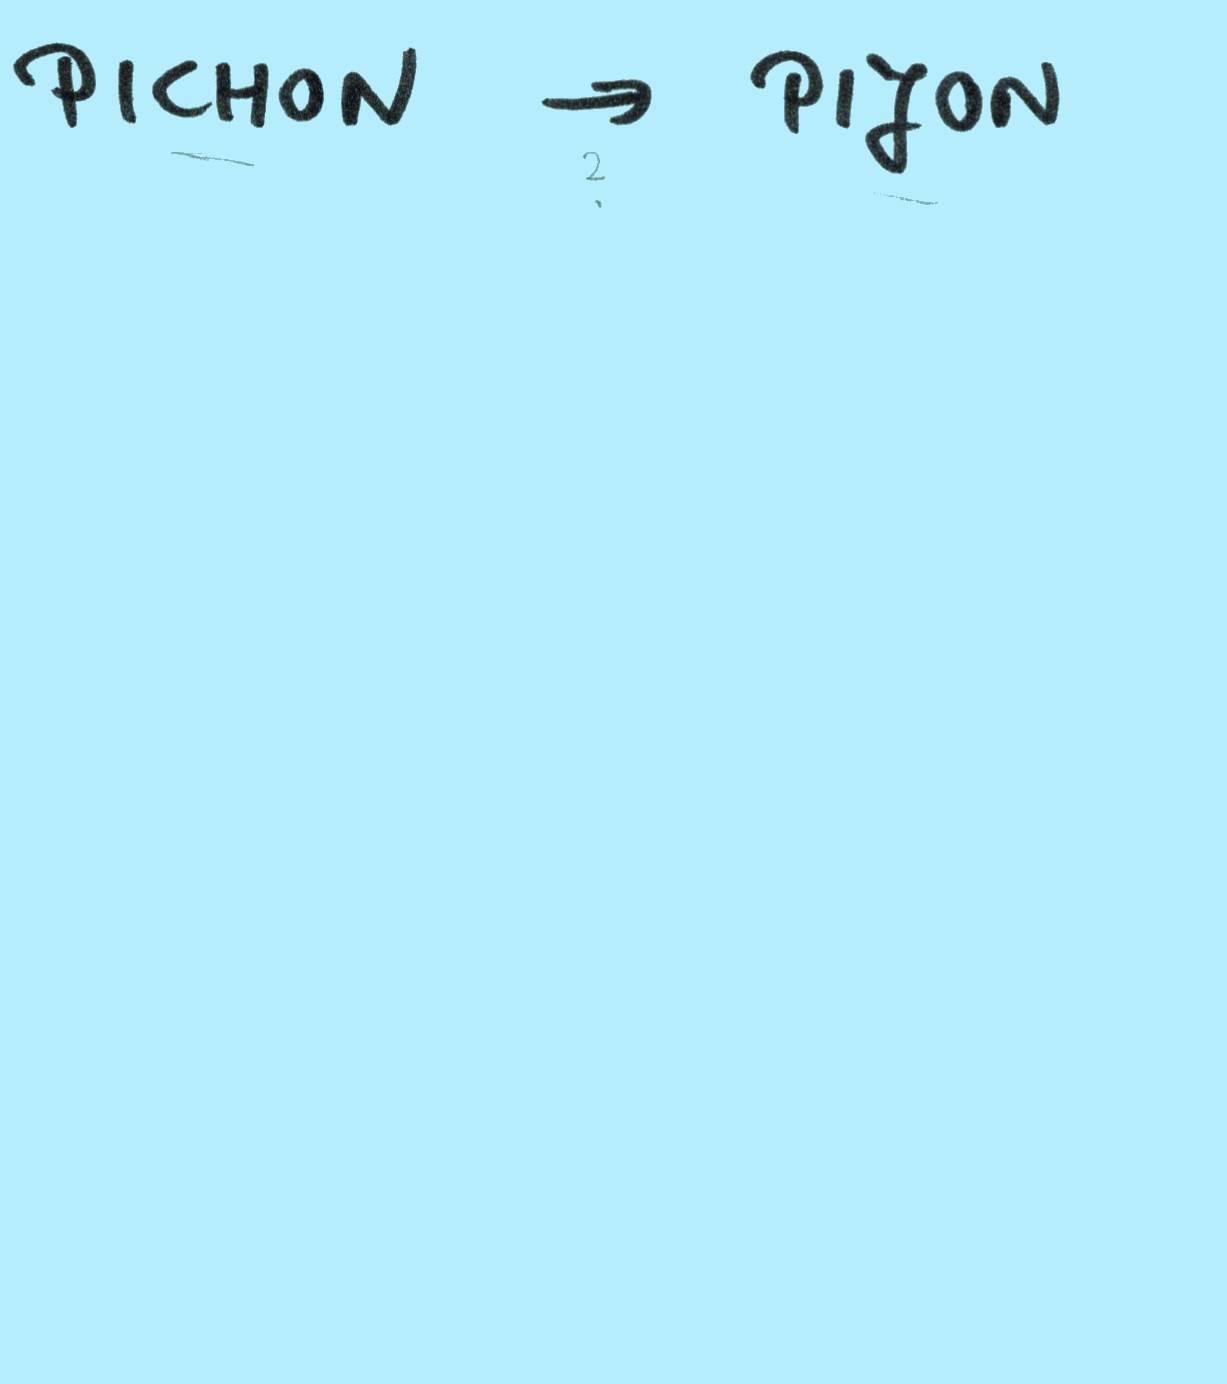 PICHON → PIJON
?